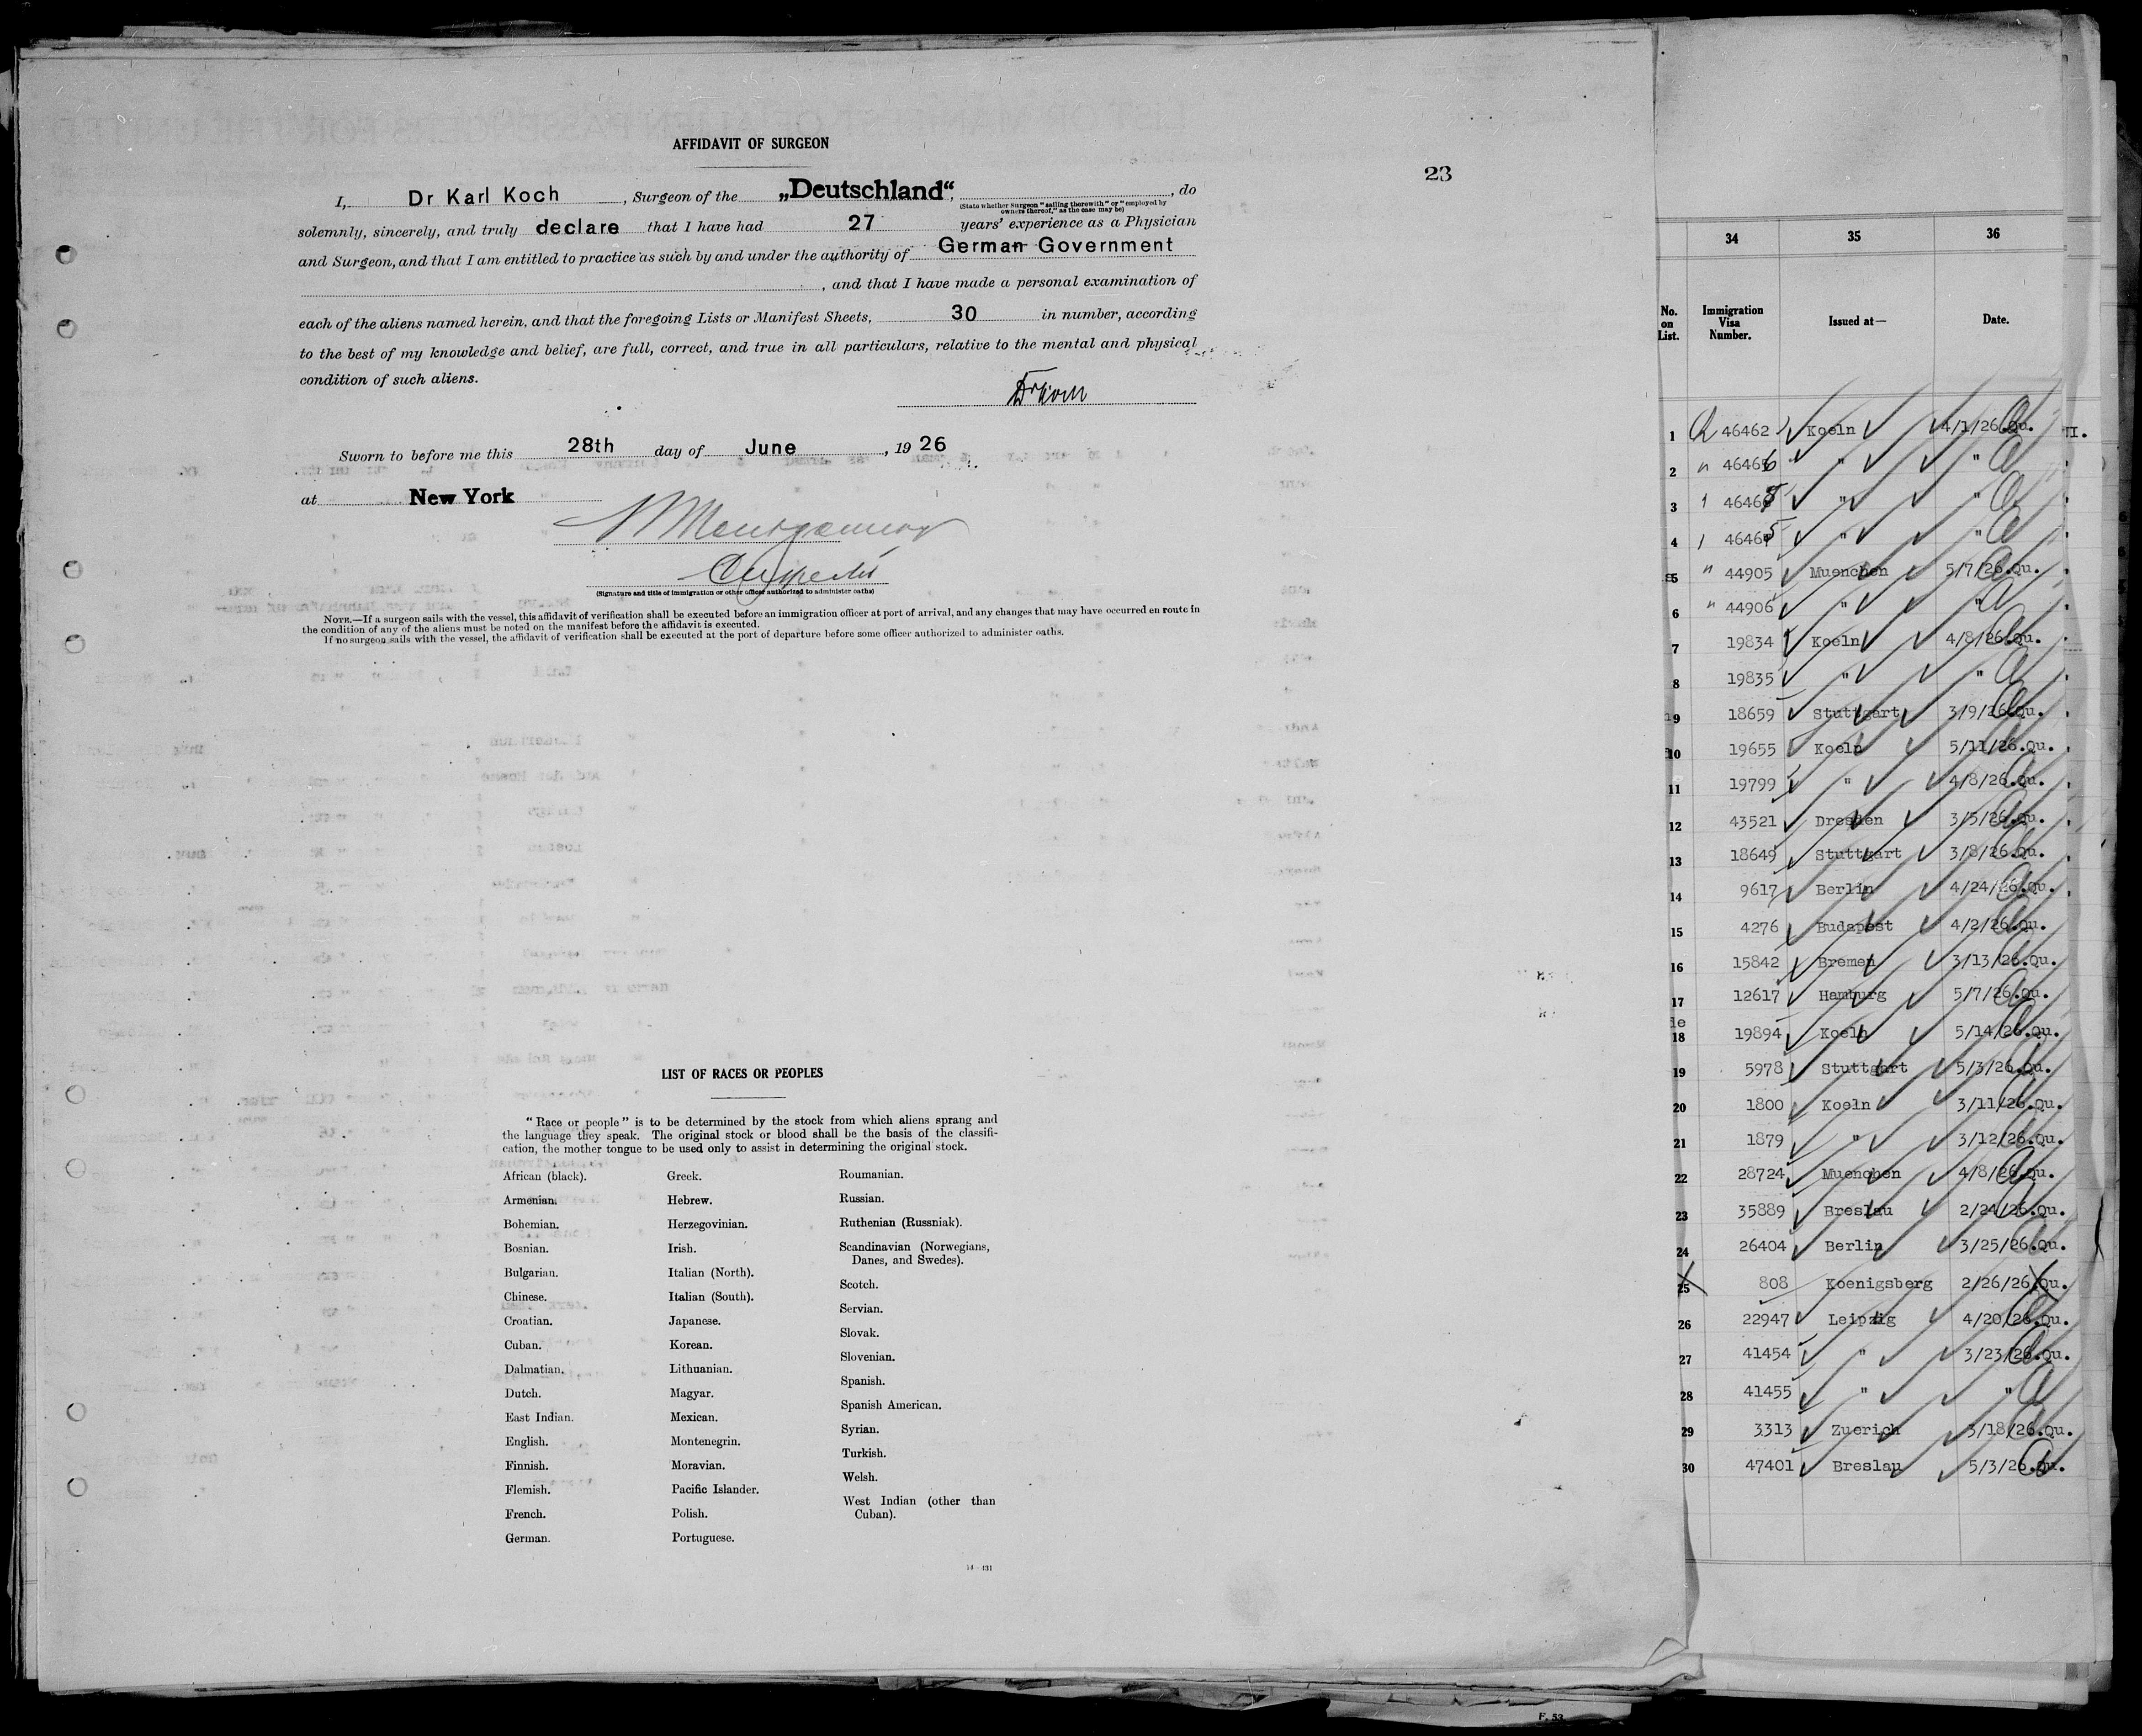 AFFIDAVIT OF SURGEON
23
I, Dr Karl Koch, Surgeon of the „Deutschland“, , do
(State whether Surgeon "sailing therewith" or "employed by owners thereof," as the case may be)
solemnly, sincerely, and truly declare that I have had 27 years' experience as a Physician
and Surgeon, and that I am entitled to practice as such by and under the authority of German Government
, and that I have made a personal examination of
each of the aliens named herein, and that the foregoing Lists or Manifest Sheets, 30 in number, according
to the best of my knowledge and belief, are full, correct, and true in all particulars, relative to the mental and physical
condition of such aliens.
Sworn to before me this 28th day of June, 1926
at New York
(Signature and title of immigration or other officer authorized to administer oaths)
NOTE.—If a surgeon sails with the vessel, this affidavit of verification shall be executed before an immigration officer at port of arrival, and any changes that may have occurred en route in
the condition of any of the aliens must be noted on the manifest before the affidavit is executed.
If no surgeon sails with the vessel, the affidavit of verification shall be executed at the port of departure before some officer authorized to administer oaths.
LIST OF RACES OR PEOPLES
"Race or people" is to be determined by the stock from which aliens sprang and
the language they speak. The original stock or blood shall be the basis of the classifi-
cation, the mother tongue to be used only to assist in determining the original stock.
African (black).
Armenian.
Bohemian.
Bosnian.
Bulgarian.
Chinese.
Croatian.
Cuban.
Dalmatian.
Dutch.
East Indian.
English.
Finnish.
Flemish.
French.
German.
Greek.
Hebrew.
Herzegovinian.
Irish.
Italian (North).
Italian (South).
Japanese.
Korean.
Lithuanian.
Magyar.
Mexican.
Montenegrin.
Moravian.
Pacific Islander.
Polish.
Portuguese.
Roumanian.
Russian.
Ruthenian (Russniak).
Scandinavian (Norwegians,
Danes, and Swedes).
Scotch.
Servian.
Slovak.
Slovenian.
Spanish.
Spanish American.
Syrian.
Turkish.
Welsh.
West Indian (other than
Cuban).
34 35 36
No. on List. Immigration Visa Number. Issued at— Date.
1 46462 Koeln 4/1/26.Qu.
2 46466 " "
3 46468 " "
4 46465 " "
5 44905 Muenchen 5/7/26.Qu.
6 44906 " "
7 19834 Koeln 4/8/26.Qu.
8 19835 " "
9 18659 Stuttgart 3/9/26.Qu.
10 19655 Koeln 5/11/26.Qu.
11 19799 " 4/8/26.Qu.
12 43521 Dresden 3/5/26.Qu.
13 18649 Stuttgart 3/8/26.Qu.
14 9617 Berlin 4/24/26.Qu.
15 4276 Budapest 4/2/26.Qu.
16 15842 Bremen 3/13/26.Qu.
17 12617 Hamburg 5/7/26.Qu.
18 19894 Koeln 5/14/26.Qu.
19 5978 Stuttgart 5/3/26.Qu.
20 1800 Koeln 3/11/26.Qu.
21 1879 " 3/12/26.Qu.
22 28724 Muenchen 4/8/26.Qu.
23 35889 Breslau 2/24/26.Qu.
24 26404 Berlin 3/25/26.Qu.
25 808 Koenigsberg 2/26/26.Qu.
26 22947 Leipzig 4/20/26.Qu.
27 41454 " 3/23/26.Qu.
28 41455 " "
29 3313 Zuerich 3/18/26.Qu.
30 47401 Breslau 5/3/26.Qu.
F. 53